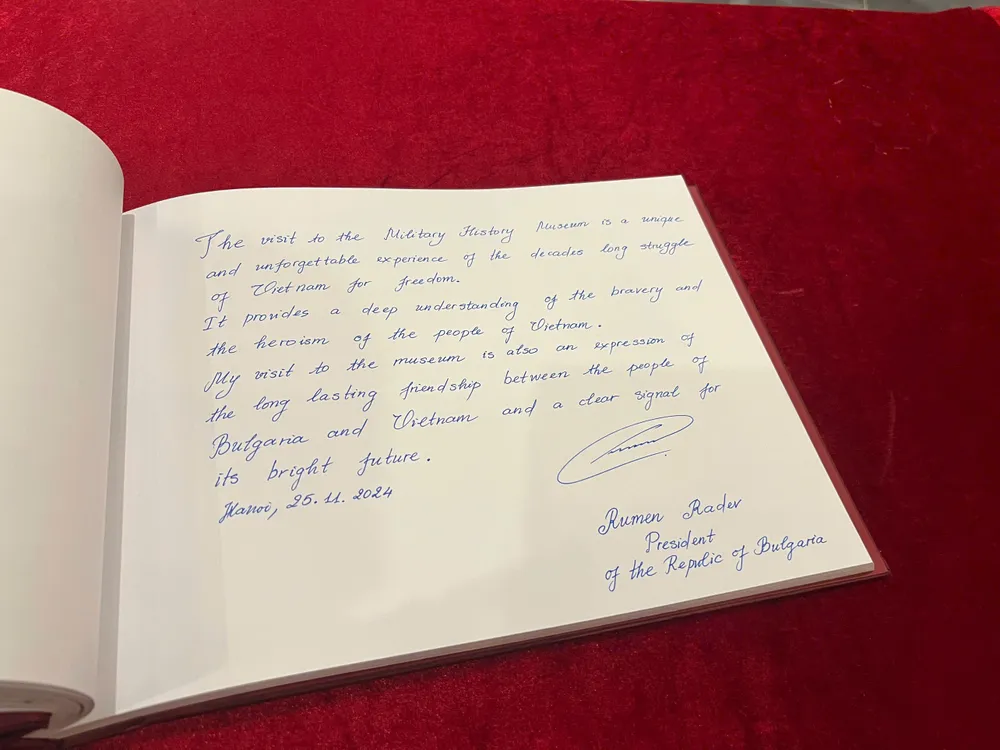 The visit to the Military History Museum is a unique
and unforgettable experience of the decades long struggle
of Vietnam for freedom.
It provides a deep understanding of the bravery and
the heroism of the people of Vietnam.
My visit to the museum is also an expression of
the long lasting friendship between the people of
Bulgaria and Vietnam and a clear signal for
its bright future.
Hanoi, 25.11.2024
Rumen Radev
President
of the Republic of Bulgaria